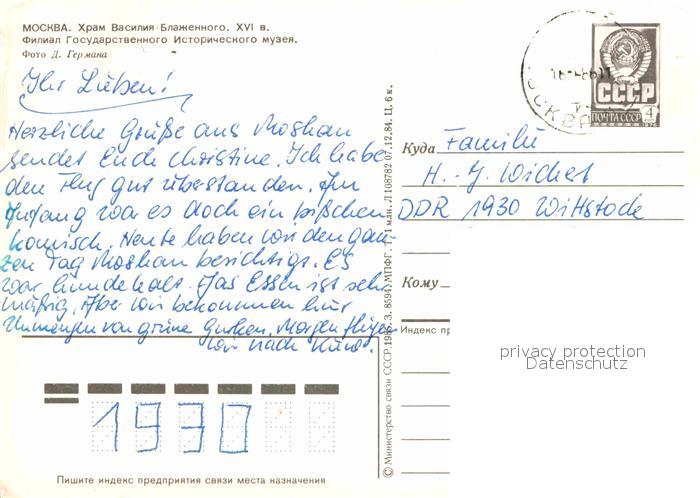 МОСКВА. Храм Василия Блаженного. XVI в.
Филиал Государственного Исторического музея.
Фото Д. Германа
Ihr Lieben!
Herzliche Grüße aus Moskau
sendet Euch Christine. Ich habe
den Flug gut überstanden. Am
Anfang war es doch ein bißchen
komisch. Heute haben wir den gan-
zen Tag Moskau besichtigt. Es
war hundekalt. Das Essen ist sehr
mäßig. Aber wir bekommen hier
Unmengen von grüne Gurken. Morgen fliegen
wir nach Kiew.
1930
Пишите индекс предприятия связи места назначения
© Министерство связи СССР. 198 З. 8594. МПФГ. 1 млн. Л108782 07.12.84. Ц. 6 к.
МОСКВА
СССР
ПОЧТА СССР
4
Куда Familie
H.-J. Wichet
DDR 1930 Wittstock
Кому
Индекс пр
privacy protection
Datenschutz